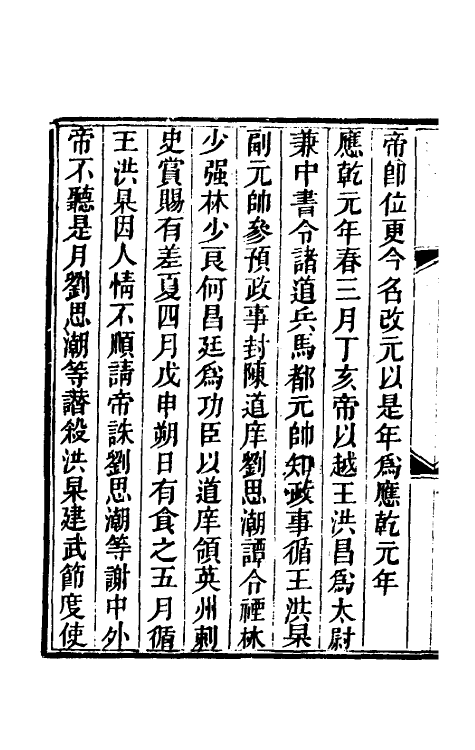 帝卽位更今名改元以是年爲應乾元年
應乾元年春三月丁亥帝以越王洪昌爲太尉
兼中書令諸道兵馬都元帥知政事循王洪杲
副元帥參預政事封陳道庠劉思潮譚令禋林
少强林少良何昌廷爲功臣以道庠領英州刺
史賞賜有差夏四月戊申朔日有食之五月循
王洪杲因人情不順請帝誅劉思潮等謝中外
帝不聽是月劉思潮等譖殺洪杲建武節度使